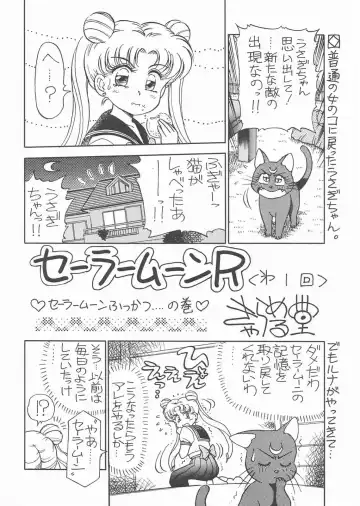 ◇普通の女のコに戻ったうさぎちゃん。
うさぎちゃん
思い出して!
…新たな敵の
出現なのっ!!
へ…?
ふぎゃー!
猫が
しゃべったあ
うさぎ
ちゃんっ!!
セーラームーンR
<わ1回>
♡セーラームーンふっかつ….の巻♡
きゃらめる堂
でもルナがやってきて…
ダメだわ
セーラームーンの
記憶を
取り戻して
くれないわ
こうなったらもう
アレをやるしか
そうー以前は
毎日のように
していたけ
やあ…
セーラームーン。
!?